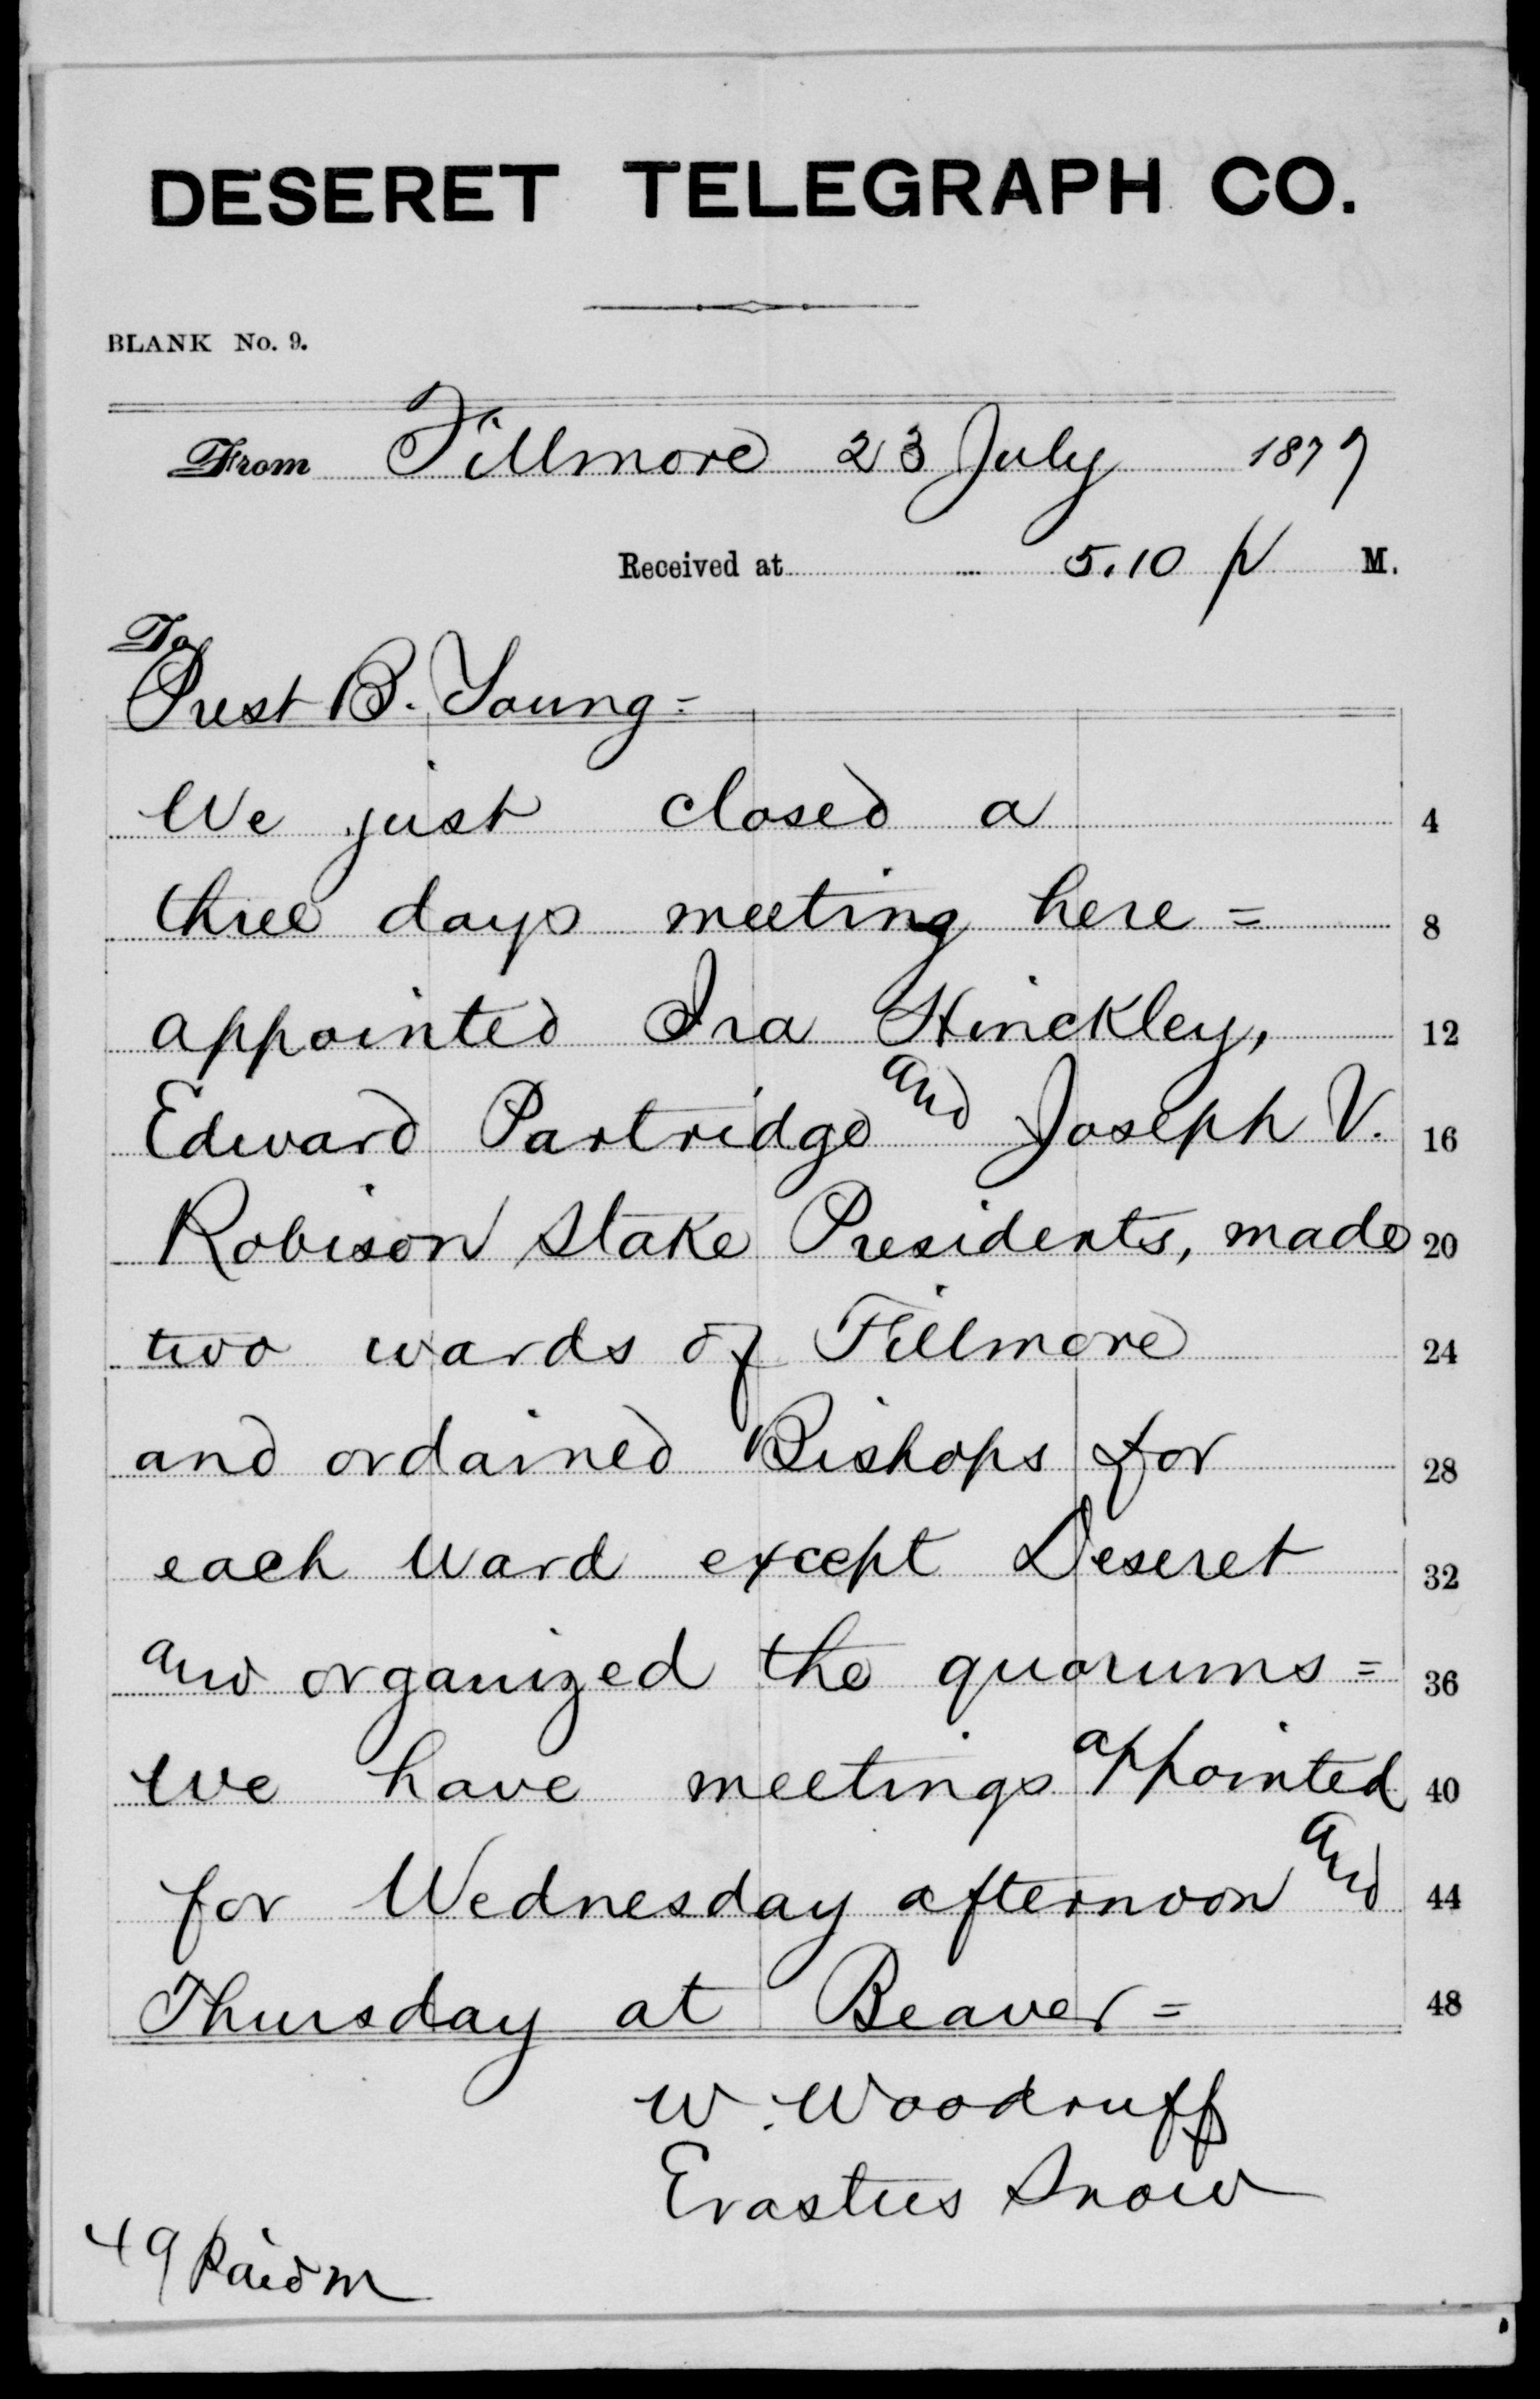 DESERET TELEGRAPH CO.
BLANK No. 9.
From Fillmore 23 July 1877
Received at 5.10 p M.
To
Prest B. Young =
We just closed a 4
three days meeting here = 8
appointed Ira Hinckley, 12
Edward Partridge and Joseph V. 16
Robison Stake Presidents, made 20
two wards of Fillmore 24
and ordained Bishops for 28
each Ward except Deseret 32
and organized the quorums = 36
we have meetings appointed 40
for Wednesday afternoon and 44
Thursday at Beaver = 48
W. Woodruff
Erastus Snow
49 Paid m